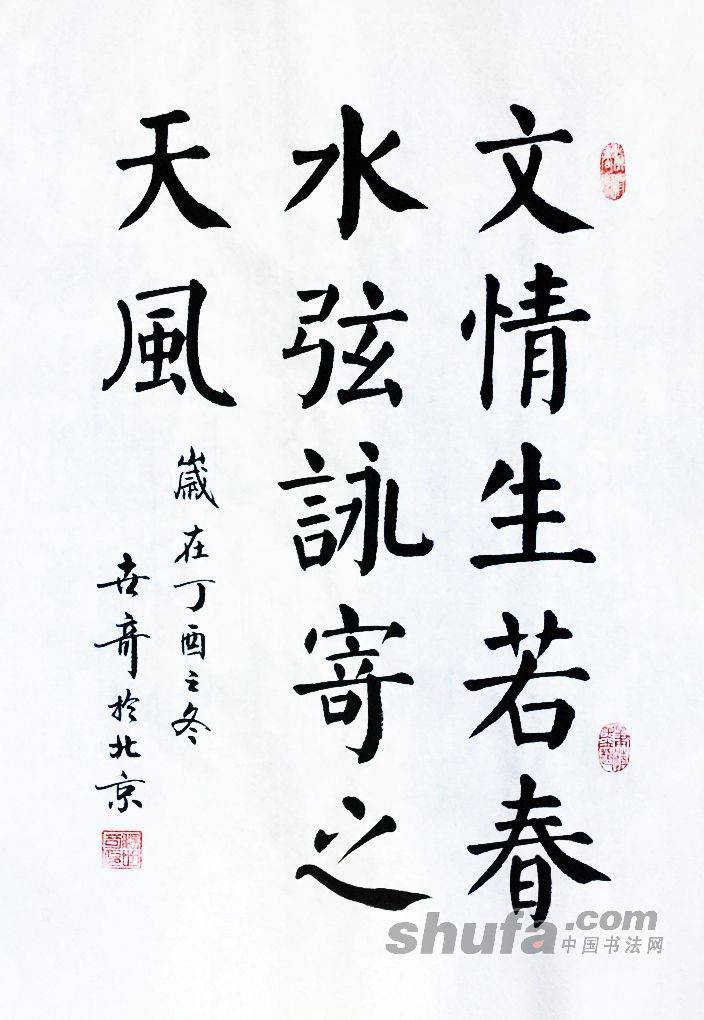 文情生若春
水弦詠寄之
天風
歲在丁酉之冬
世奇於北京
shufa.com
中国书法网